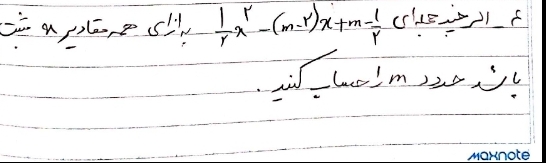 ۶ــ اگر چند جمله‌ای ۱/۲x² − (m−۲)x + m − ۱/۲ به ازای همه مقادیر x مثبت
باشد حدود m را حساب کنید.
MAXNOTE